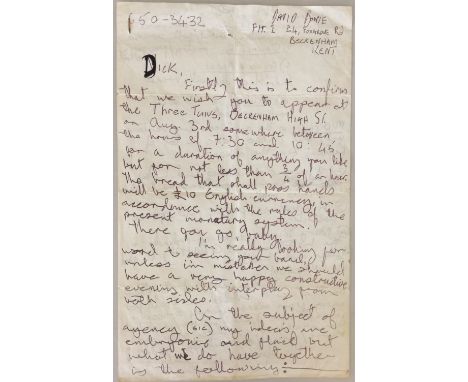 650-3432
DAVID BOWIE
FLT. 2 24, FOXGROVE RD
BECKENHAM
KENT
Dick,
Firstly this is to confirm
that we wish you to appear at
the THREE TUNS, BECKENHAM HIGH ST.
on Aug. 3rd somewhere between
the hours of 7.30 and 10.45
for a duration of anything you like
but for not less than 3/4 of an hour.
The bread that shall pass hands
will be £10 English currency, in
accordance with the rules of the
present monetary system.
There you go baby.
I'm really looking for
ward to seeing your band,
unless i'm mistaken we should
have a very happy constructive
evening with interplay from
both sides.
On the subject of
agency (sic) my ideas, are
embryonic and fluid but
what we do have together
is the following:—